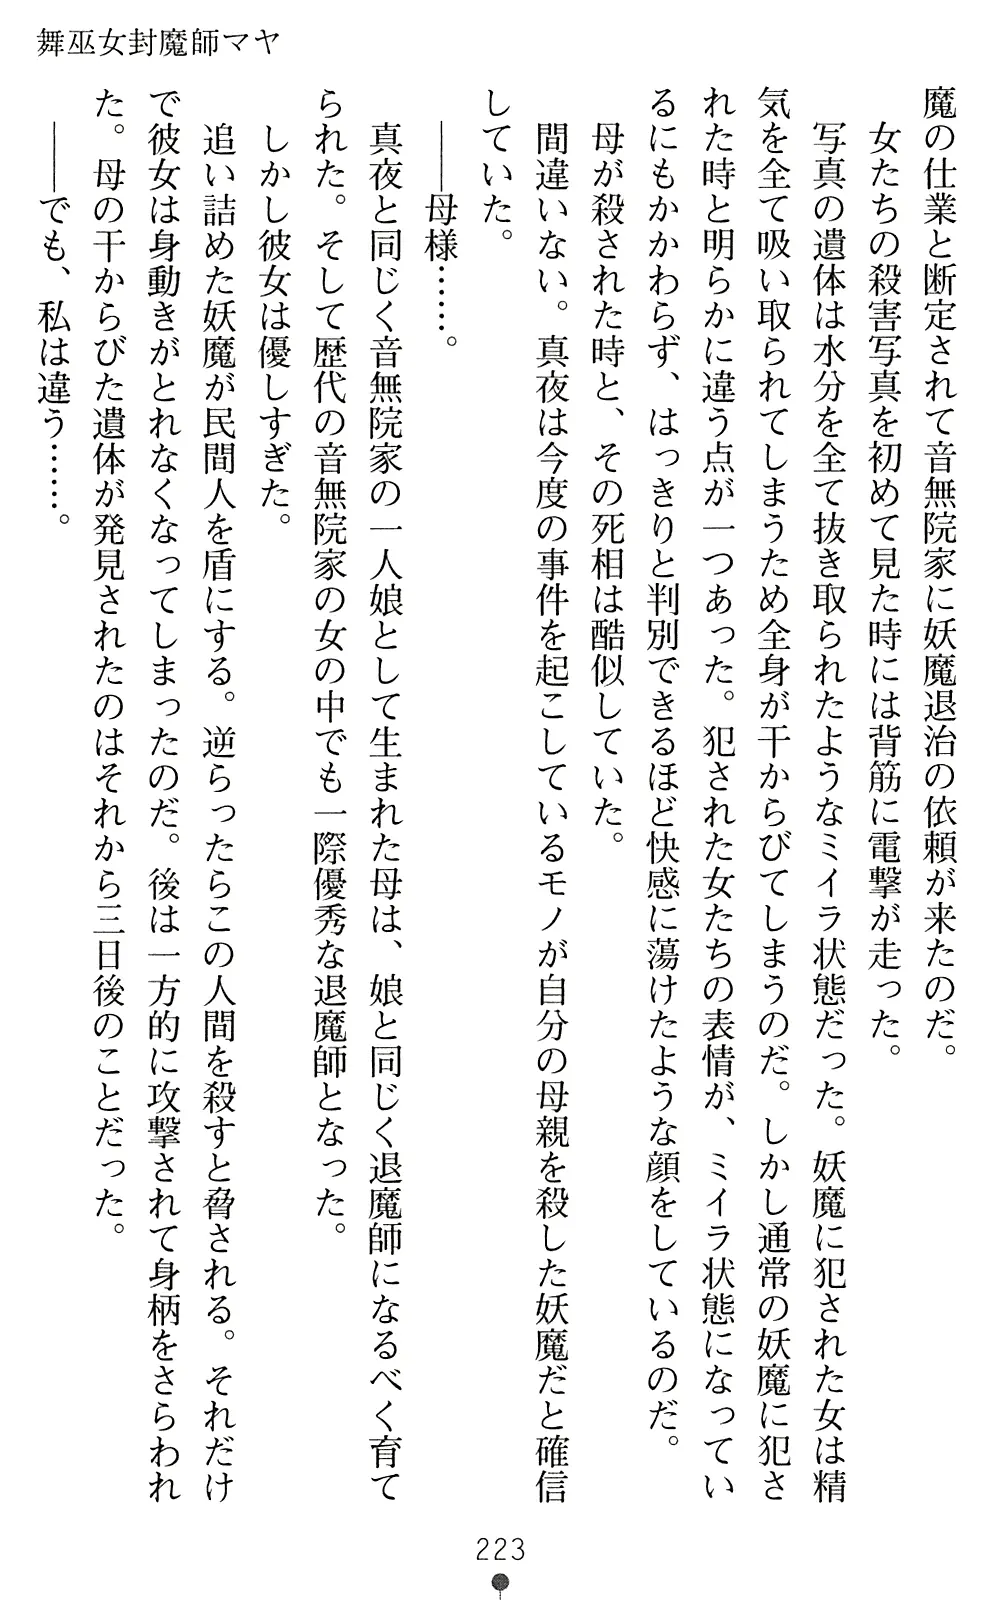 舞巫女封魔師マヤ
魔の仕業と断定されて音無院家に妖魔退治の依頼が来たのだ。
女たちの殺害写真を初めて見た時には背筋に電撃が走った。
写真の遺体は水分を全て抜き取られたようなミイラ状態だった。妖魔に犯された女は精
気を全て吸い取られてしまうため全身が干からびてしまうのだ。しかし通常の妖魔に犯さ
れた時と明らかに違う点が一つあった。犯された女たちの表情が、ミイラ状態になってい
るにもかかわらず、はっきりと判別できるほど快感に蕩けたような顔をしているのだ。
母が殺された時と、その死相は酷似していた。
間違いない。真夜は今度の事件を起こしているモノが自分の母親を殺した妖魔だと確信
していた。
――母様……。
真夜と同じく音無院家の一人娘として生まれた母は、娘と同じく退魔師になるべく育て
られた。そして歴代の音無院家の女の中でも一際優秀な退魔師となった。
しかし彼女は優しすぎた。
追い詰めた妖魔が民間人を盾にする。逆らったらこの人間を殺すと脅される。それだけ
で彼女は身動きがとれなくなってしまったのだ。後は一方的に攻撃されて身柄をさらわれ
た。母の干からびた遺体が発見されたのはそれから三日後のことだった。
――でも、私は違う……。
223